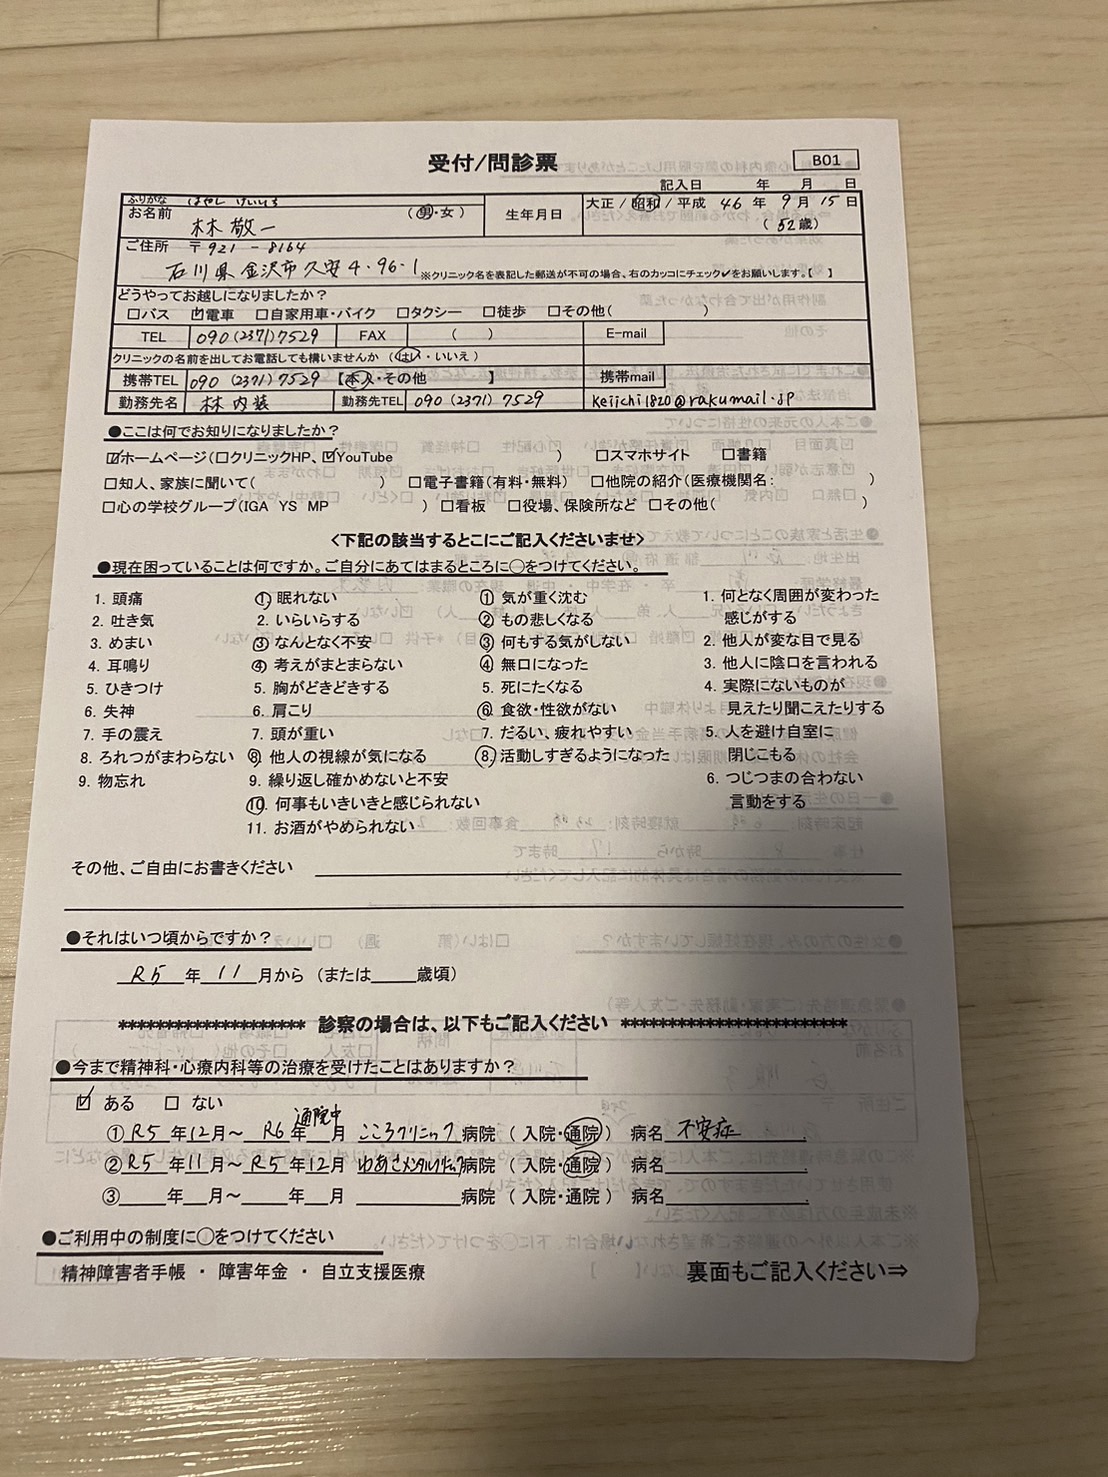 受付/問診票
B01
記入日　年　月　日
ふりがな　はやし けいいち
お名前　林 敬一　(男・女)　生年月日　大正 / 昭和 / 平成 46 年 9 月 15 日
(52歳)
ご住所　〒921 - 8164
石川県金沢市久安4・96・1 ※クリニック名を表記した郵送が不可の場合、右のカッコにチェック✔をお願いします。【　】
どうやってお越しになりましたか？
□バス　☑電車　□自家用車・バイク　□タクシー　□徒歩　□その他(　)
TEL　090 (2371) 7529　FAX　(　)　E-mail
クリニックの名前を出してお電話しても構いませんか (はい・いいえ)
携帯TEL　090 (2371) 7529 【本人・その他　】　携帯mail
勤務先名　林内装　勤務先TEL　090 (2371) 7529　keiichi1820@rakumail.jp
●ここは何でお知りになりましたか？
☑ホームページ(□クリニックHP、☑YouTube　)　□スマホサイト　□書籍
□知人、家族に聞いて(　)　□電子書籍(有料・無料)　□他院の紹介(医療機関名:　)
□心の学校グループ(IGA YS MP　)　□看板　□役場、保険所など　□その他(　)
<下記の該当するとこにご記入くださいませ>
●現在困っていることは何ですか。ご自分にあてはまるところに○をつけてください。
1. 頭痛　① 眠れない　① 気が重く沈む　1. 何となく周囲が変わった
2. 吐き気　2. いらいらする　② もの悲しくなる　感じがする
3. めまい　③ なんとなく不安　③ 何もする気がしない　2. 他人が変な目で見る
4. 耳鳴り　④ 考えがまとまらない　④ 無口になった　3. 他人に陰口を言われる
5. ひきつけ　5. 胸がどきどきする　5. 死にたくなる　4. 実際にないものが
6. 失神　6. 肩こり　⑥ 食欲・性欲がない　見えたり聞こえたりする
7. 手の震え　7. 頭が重い　7. だるい、疲れやすい　5. 人を避け自室に
8. ろれつがまわらない　⑧ 他人の視線が気になる　⑧ 活動しすぎるようになった　閉じこもる
9. 物忘れ　9. 繰り返し確かめないと不安　6. つじつまの合わない
⑩ 何事もいきいきと感じられない　言動をする
11. お酒がやめられない
その他、ご自由にお書きください
●それはいつ頃からですか？
R5 年 11 月から (または　歳頃)
******************** 診察の場合は、以下もご記入ください ************************
●今まで精神科・心療内科等の治療を受けたことはありますか？
☑ ある　□ ない
通院中
① R5 年12月～ R6 年　月 こころクリニック 病院 ( 入院・通院 ) 病名 不安症
② R5 年11月～ R5 年12月 ゆあさメンタルクリニック 病院 ( 入院・通院 ) 病名
③　年　月～　年　月　病院 ( 入院・通院 ) 病名
●ご利用中の制度に○をつけてください
精神障害者手帳 ・ 障害年金 ・ 自立支援医療
裏面もご記入ください⇒